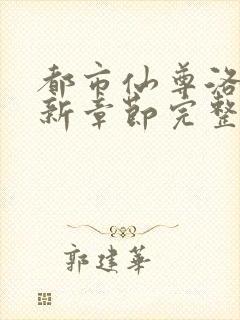 都市仙尊洛
新章节完整
郭建华